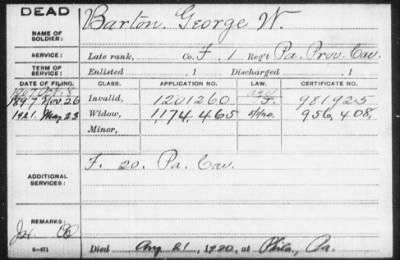 DEAD
NAME OF SOLDIER: Barton, George W.
SERVICE: Late rank, Co. F, 1 Reg't Pa. Prov. Cav.
TERM OF SERVICE: Enlisted , 1 Discharged , 1
DATE OF FILING. CLASS. APPLICATION NO. LAW. CERTIFICATE NO.
1897 Nov. 26 Invalid, 1201260 F. 981925
1921 May 23 Widow, 1,174,465 956,408.
Minor,
ADDITIONAL SERVICES: F. 20. Pa. Cav.
REMARKS:
Died Aug 21, 1920, at Phila, Pa.